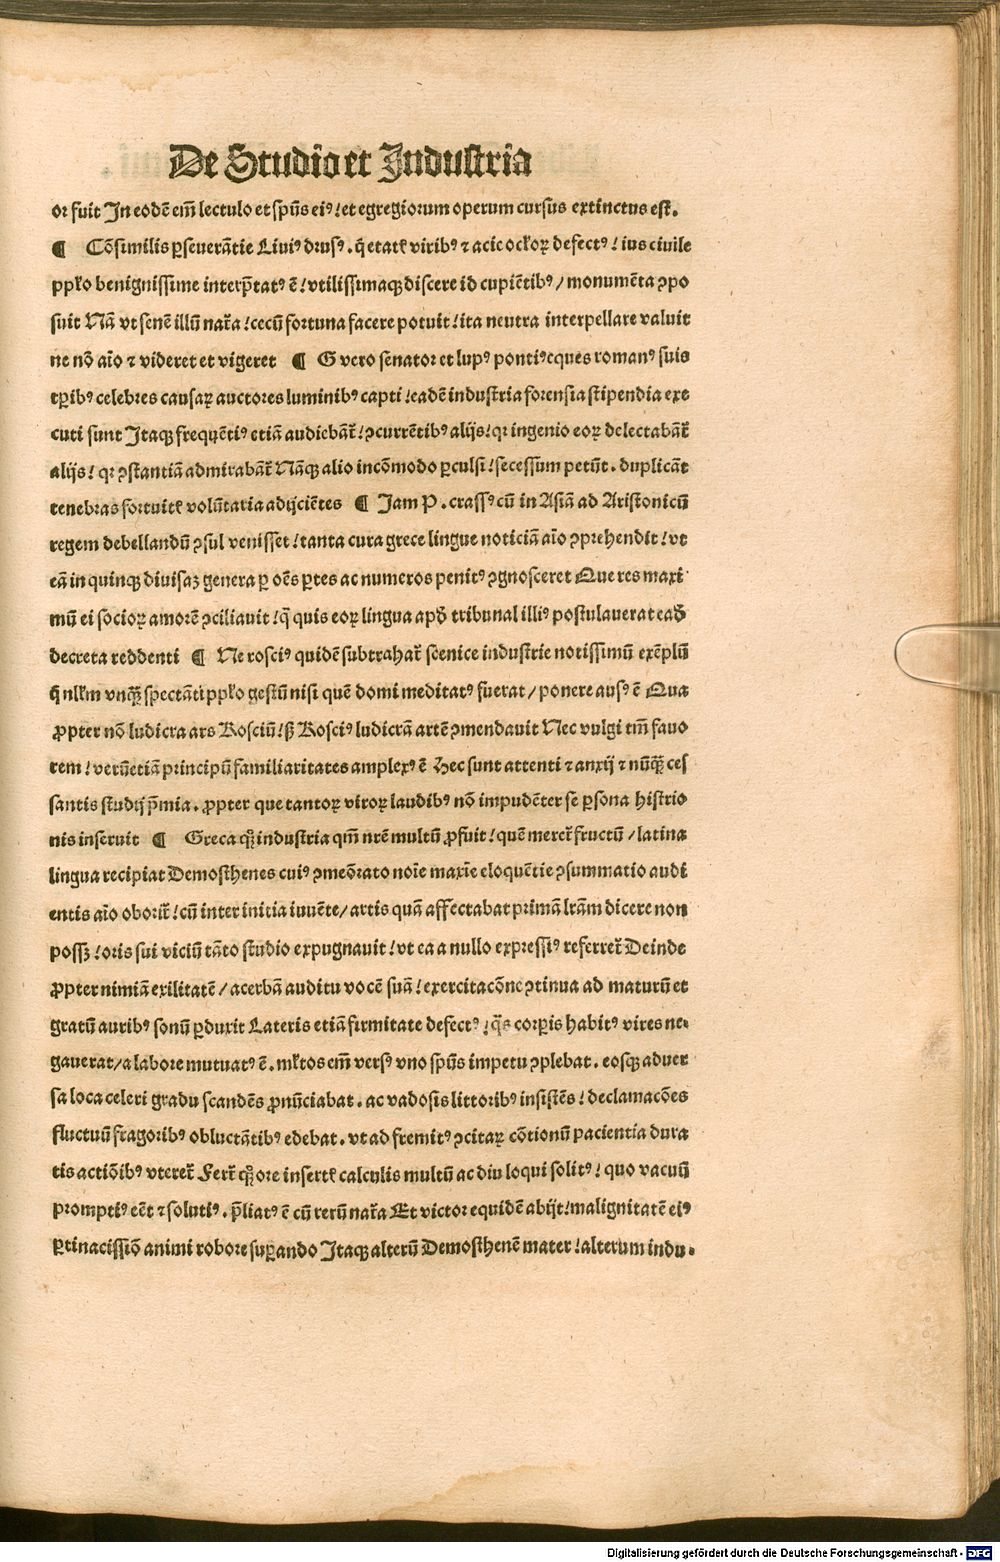 De Studio et Industria
or fuit In eodē em̄ lectulo et spūs eiꝰ/ et egregiorum operum cursus extinctus est.
¶ Cōsimilis ꝑseuerātie Liuiꝰ drusꝰ. q̄ etatꝭ viribꝰ ⁊ acie ocl̓oꝝ defectꝰ/ ius ciuile
ppl̓o benignissime interp̄tatꝰ ē/ vtilissimaqꝫ discere id cupiētibꝰ/ monumēta ꝯpo
suit Nā vt senē illū nat̄a/ cecū fortuna facere potuit/ ita neutra interpellare valuit
ne nō aīo ⁊ videret et vigeret ¶ G vero senator et lupꝰ pontiꝰ eques romanꝰ suis
tꝑibꝰ celebres causaꝝ auctores luminibꝰ capti/ eadē industria forensia stipendia exe
cuti sunt Itaqꝫ frequētiꝰ etiā audiebāt̄/ ꝯcurrētibꝰ alijs/ qꝛ ingenio eoꝝ delectabāt̄
alijs/ qꝛ ꝯstantiā admirabāt̄ Nāqꝫ alio incōmodo ꝑculsi/ secessum petūt. duplicāt
tenebras fortuitꝭ volūtaria adijciētes ¶ Jam P. crassꝰ cū in Asiā ad Aristonicū
regem debellandū ꝯsul venisset/ tanta cura grece lingue noticiā aīo ꝯprehendit/ vt
eā in quinqꝫ diuisaꝫ genera ꝑ oēs ꝑtes ac numeros penitꝰ ꝯgnosceret Que res maxi
mū ei socioꝝ amorē ꝯciliauit/ q̄ quis eoꝝ lingua apd̓ tribunal illiꝰ postulauerat ead̓
decreta reddenti ¶ Ne rosciꝰ quidē subtrahat̄ scenice industrie notissimū exēplū
q̄ nllm̄ vnqꝫ̄ spectāti ppl̓o gestū nisi quē domi meditatꝰ fuerat/ ponere ausꝰ ē Qua
ꝓpter nō ludicra ars Rosciū/ sꝫ Rosciꝰ ludicrā artē ꝯmendauit Nec vulgi tm̄ fauo
rem/ verūetiā principū familiaritates amplexꝰ ē Hec sunt attenti ⁊ anxij ⁊ nūqꝫ̄ ces
santis studij p̄mia. ꝓpter que tantoꝝ viroꝝ laudibꝰ nō impudēter se ꝑsona histrio
nis inseruit ¶ Greca qꝫ̄ industria qm̄ nr̄e multū ꝓfuit/ quē meret̄ fructū/ latina
lingua recipiat Demosthenes cuiꝰ ꝯmeōrato noīe maxīe eloquētie ꝯsummatio audi
entis aīo oborit̄/ cū inter initia iuuēte/ artis quā affectabat primā lr̄am dicere non
possꝫ/ oris sui viciū tāto studio expugnauit/ vt ea a nullo expressiꝰ referret̄ Deinde
ꝓpter nimiā exilitatē/ acerbā auditu vocē suā/ exercitacōne ꝯtinua ad maturū et
gratū auribꝰ sonū ꝑduxit Lateris etiā firmitate defectꝰ/ q̄s corꝑis habitꝰ vires ne⸗
gauerat/ a labore mutuatꝰ ē. ml̓tos em̄ versꝰ vno spūs impetu ꝯplebat. eosqꝫ aduer
sa loca celeri gradu scandēs ꝓnūciabat. ac vadosis littoribꝰ insistēs/ declamacōes
fluctuū fragoribꝰ obluctātibꝰ edebat. vt ad fremitꝰ ꝯcitaꝝ cōtionū pacientia dura
tis actiōibꝰ vteret̄ Fert̄ qꝫ̄ ore insertꝭ calculis multū ac diu loqui solitꝰ/ quo vacuū
promptiꝰ eēt ⁊ solutiꝰ. p̄liatꝰ ē cū rerū nat̄a Et victor equidē abijt/ malignitatē eiꝰ
ꝑtinacissiō animi robore suꝑando Itaqꝫ alterū Demosthenē mater/ alterum indu⸗
Digitalisierung gefördert durch die Deutsche Forschungsgemeinschaft - DFG